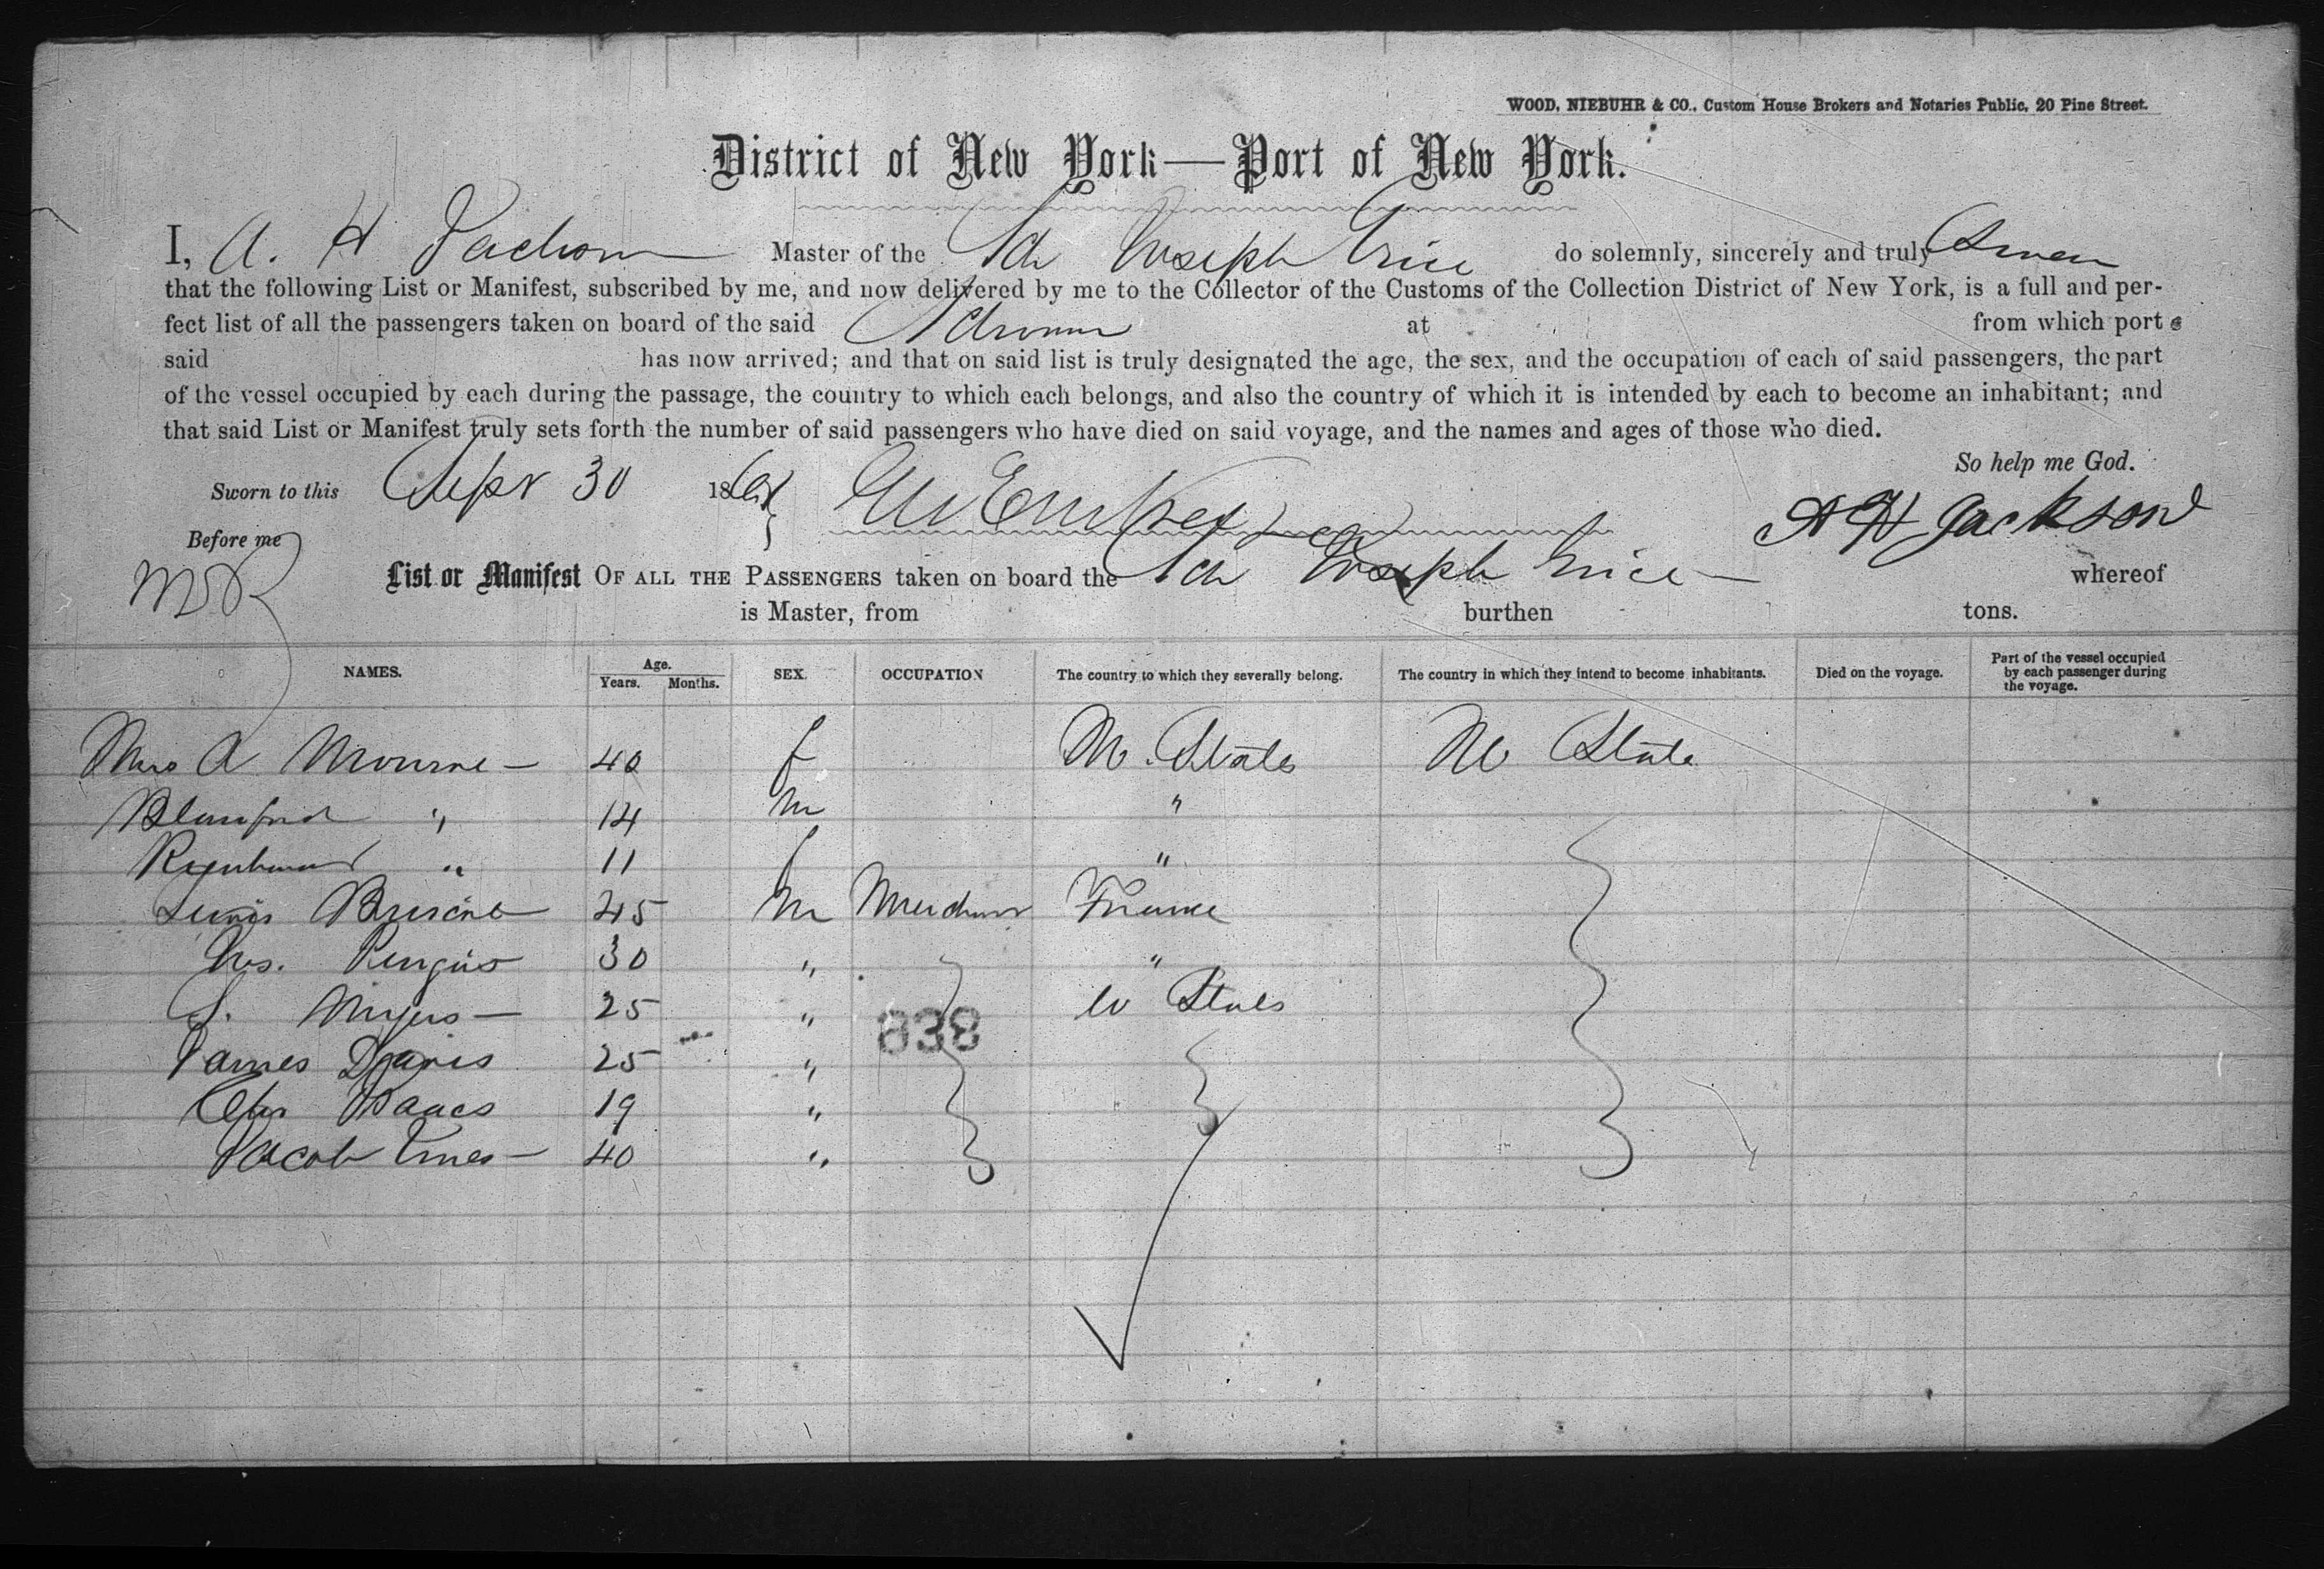 WOOD, NIEBUHR & CO., Custom House Brokers and Notaries Public, 20 Pine Street.
District of New York—Port of New York.
I, A. H Jackson Master of the Sch Joseph Grice do solemnly, sincerely and truly Swear
that the following List or Manifest, subscribed by me, and now delivered by me to the Collector of the Customs of the Collection District of New York, is a full and per-
fect list of all the passengers taken on board of the said Schooner at from which port
said has now arrived; and that on said list is truly designated the age, the sex, and the occupation of each of said passengers, the part
of the vessel occupied by each during the passage, the country to which each belongs, and also the country of which it is intended by each to become an inhabitant; and
that said List or Manifest truly sets forth the number of said passengers who have died on said voyage, and the names and ages of those who died.
So help me God.
Sworn to this Sept 30 186 A H Jackson
Before me
List or Manifest OF ALL THE PASSENGERS taken on board the Sch Joseph Grice — whereof
is Master, from burthen tons.
NAMES. Age. Years. Months. SEX. OCCUPATION The country to which they severally belong. The country in which they intend to become inhabitants. Died on the voyage. Part of the vessel occupied by each passenger during the voyage.
Mrs A — 40 f U. States U State
" 14 m "
" 11 f "
Louis 45 m Merchant France
30 " "
S. Myers — 25 " U States
838
James Davis 25 "
Isaacs 19 "
Jacob — 40 "